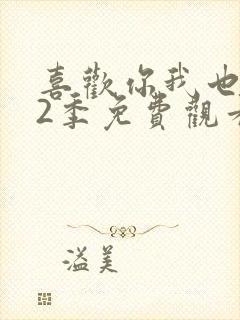 喜歡你我也
2季免費觀
溢美